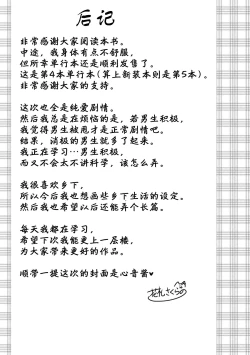 后记
非常感谢大家阅读本书。
中途，我身体有点不舒服，
但所幸单行本还是顺利发售了。
这是第4本单行本（算上新装本则是第5本）。
非常感谢大家的支持。
这次也全是纯爱剧情。
然后我总是在烦恼的是，若男生积极，
我觉得男生被甩才是正常剧情吧。
结果，消极的男生就多了起来。
我正在学习…男生积极，
而又不会太不讲科学，该怎么弄。
我很喜欢乡下，
所以今后我也想画些乡下生活的设定。
然后我也希望以后还能弄个长篇。
每天我都在学习，
希望下次我能更上一层楼，
为大家带来更好的作品。
顺带一提这次的封面是心音酱♥